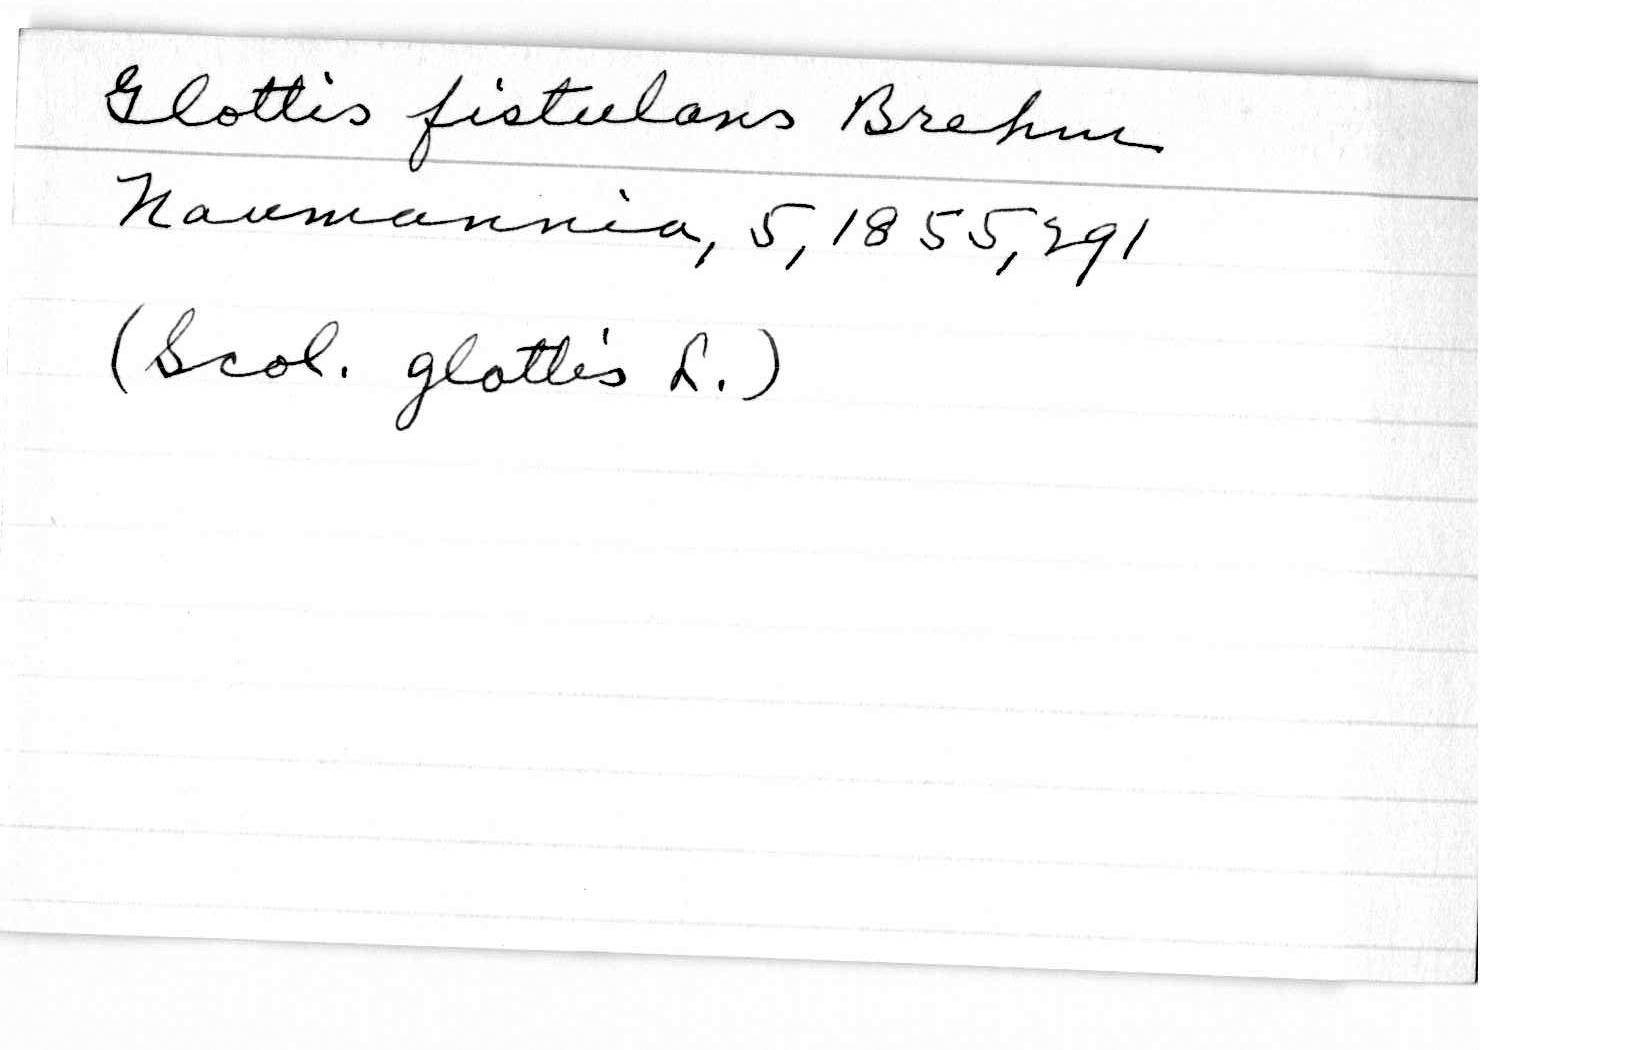 Glottis fistulans Brehm
Naumannia, 5, 1855, 291
(Scol. glottis L.)